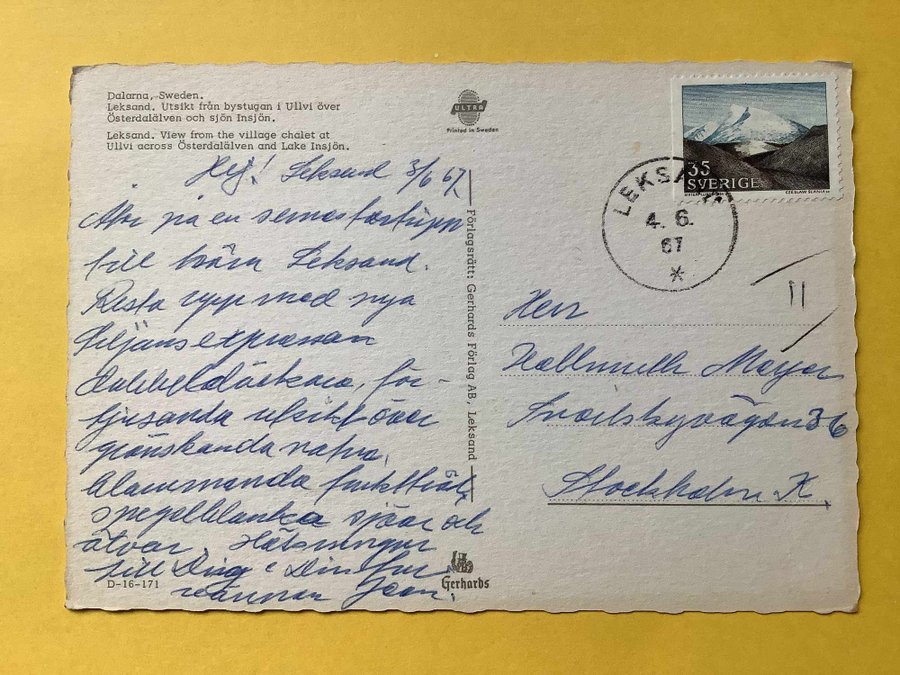 Dalarna, Sweden.
Leksand. Utsikt från bystugan i Ullvi över
Österdalälven och sjön Insjön.
Leksand. View from the village chalet at
Ullvi across Österdalälven and Lake Insjön.
ULTRA
Printed in Sweden
35
SVERIGE
CZESLAW SLANIA
LEKSAND
4. 6.
67
Hej! Leksand 3/6 67.
på en semestertripp
till Leksand.
Resta upp med nya
Siljansexpressen
för-
tjusande utsikt över
grönskande natur,
blommande fruktträd,
spegelblanka sjöar och
älvar. Hälsningar
till Dig o Din fru
vännen
Förlagsrätt: Gerhards Förlag AB, Leksand
Herr
Mayer
36
Stockholm K.
D-16-171
Gerhards